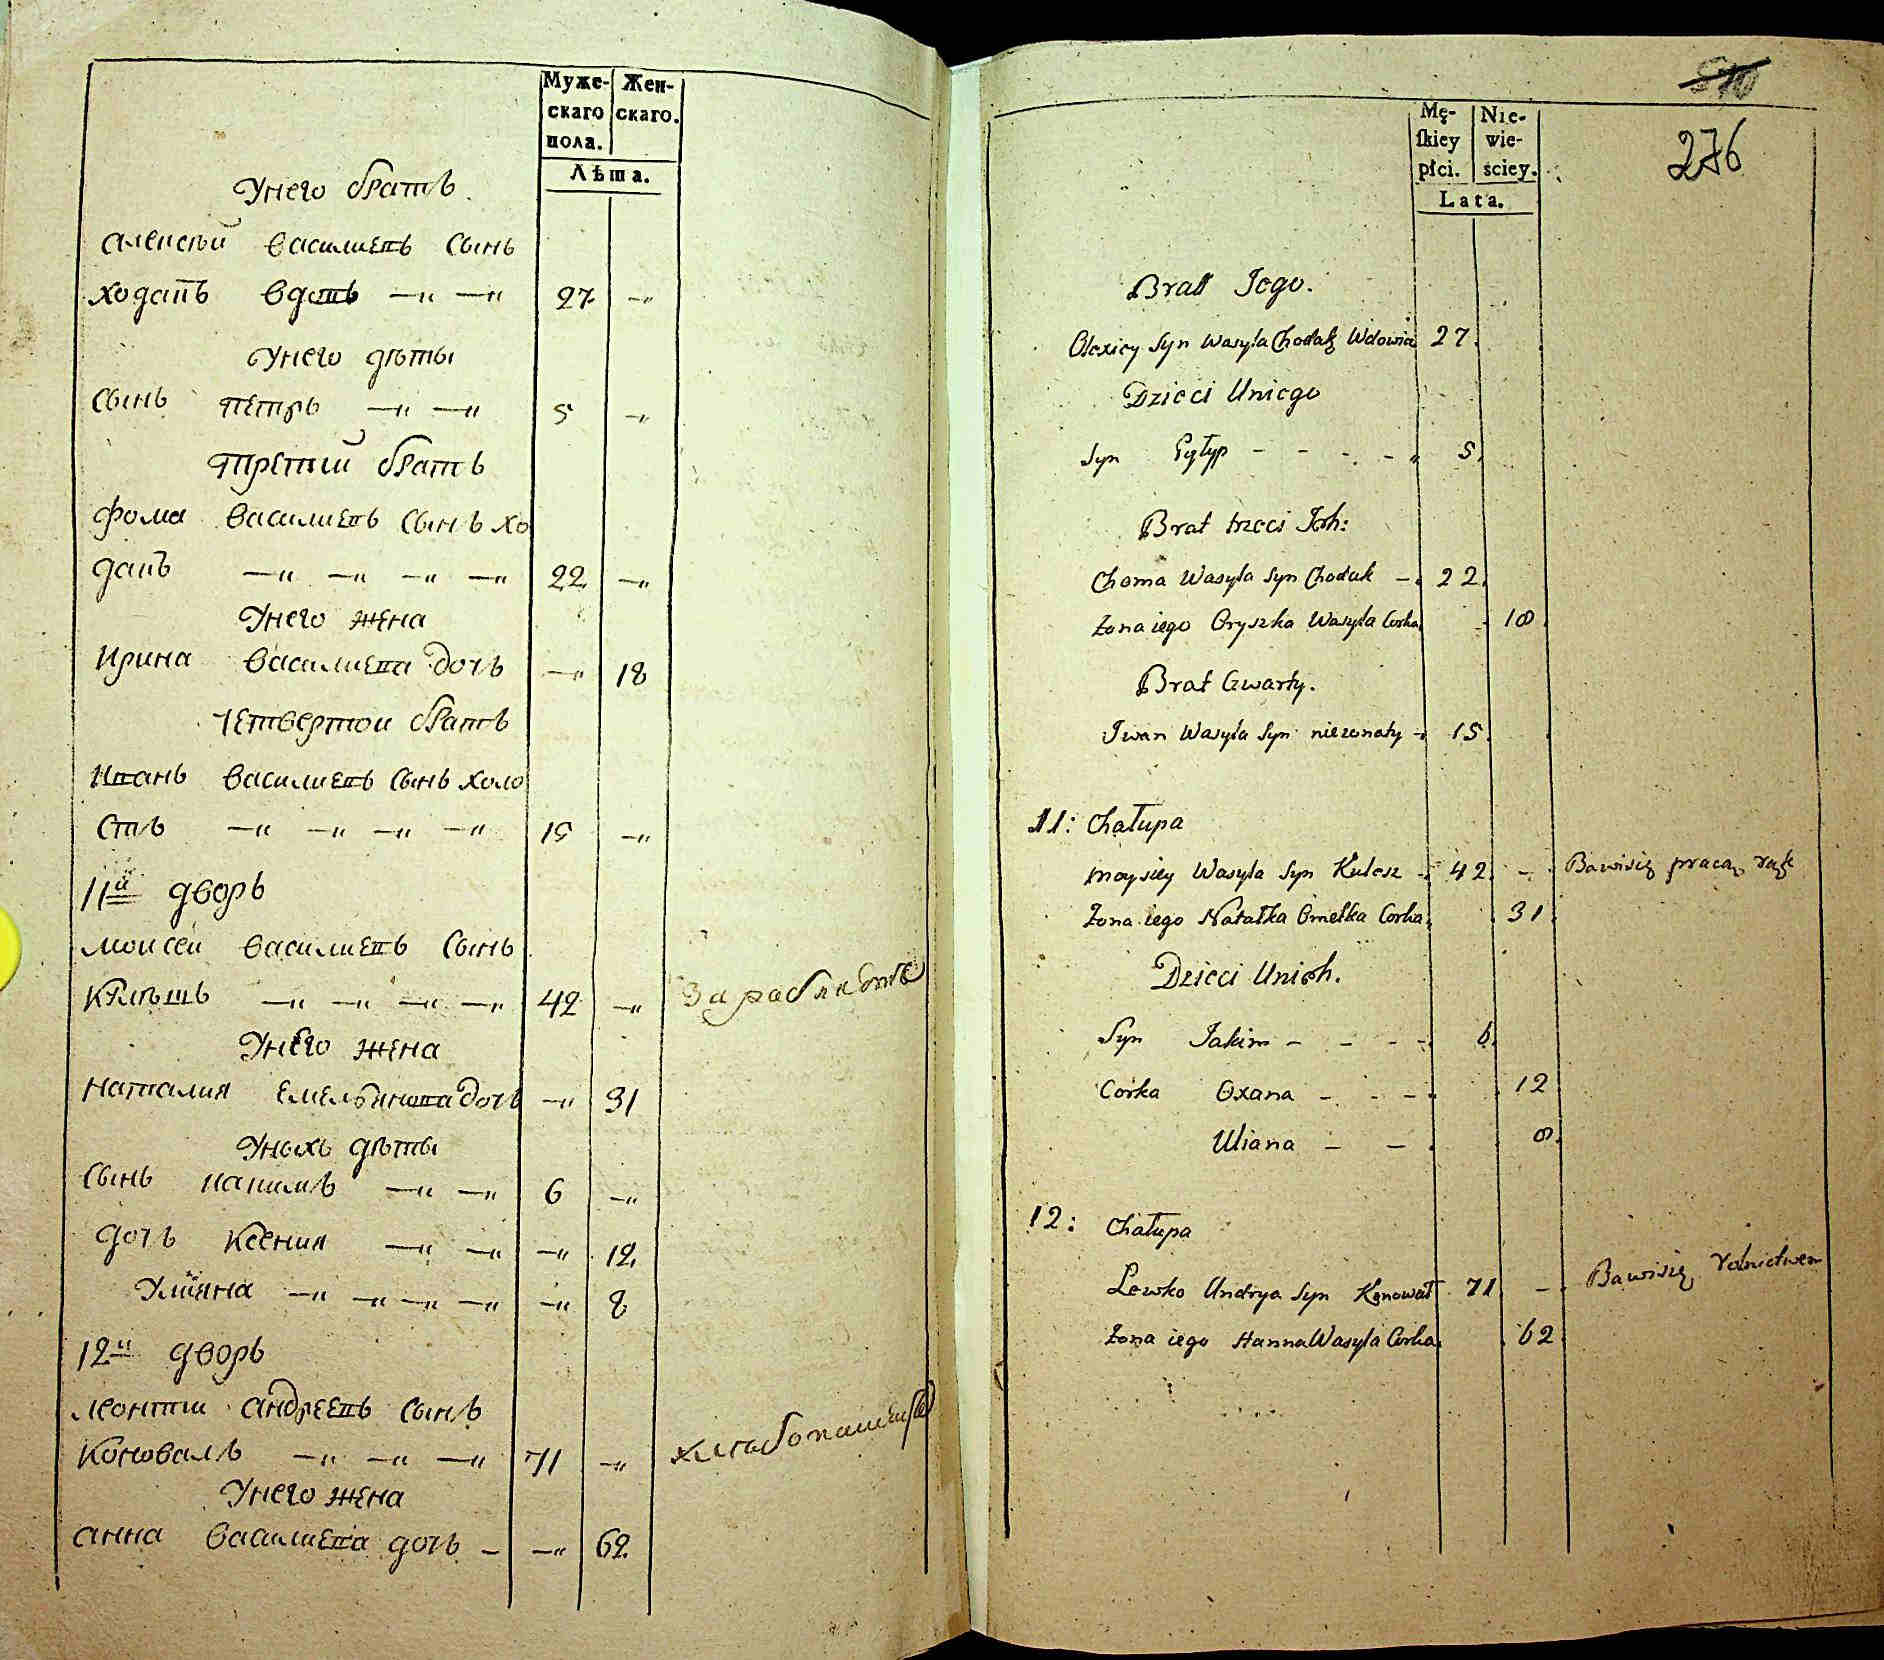 Муже-
скаго
пола.
Жен-
скаго.
Лѣта.
Унего братъ
Алексѣй Василиевъ сынъ
Ходакъ вдовъ 27
Унего дѣты
Сынъ Петръ 5
Третий братъ
Фома Василиевъ сынъ Хо
дакъ 22
Унего жена
Ирина Василиева дочь 18
Четвертой братъ
Иванъ Василиевъ сынъ холо
стъ 15
11й дворъ
Моисей Василиевъ сынъ
42
Унего жена
Наталия Емельянова дочь 31
Унихъ дѣты
Сынъ 6
Дочь Ксения 12
Улияна 8
12й дворъ
Леонтий Андреевъ сынъ
Коновалъ 71
Унего жена
Анна Василиева дочь 62
276
Mę-
skiey
płci.
Nie-
wie-
sciey.
Lata.
Brat Jego.
Olexiey Syn Wasyla Chodak Wdowiec 27.
Dzieci Uniego
Syn 5.
Brat trzeci Ich:
Choma Wasyla Syn Chodak 22.
Żona iego Oryszka Wasyla Corka 18.
Brat Czwarty.
Iwan Wasyla Syn niezonaty 15.
11: Chałupa
Moysiey Wasyla Syn Kulesz 42. Bawisię pracą rąk
Żona iego Natalka Omelka Corka 31.
Dzieci Unich.
Syn Jakim 6.
Corka Oxana 12
Uliana 8.
12: Chałupa
Lewko Undrya Syn Konował 71 Bawisię rolnictwem
Żona iego Hanna Wasyla Corka 62